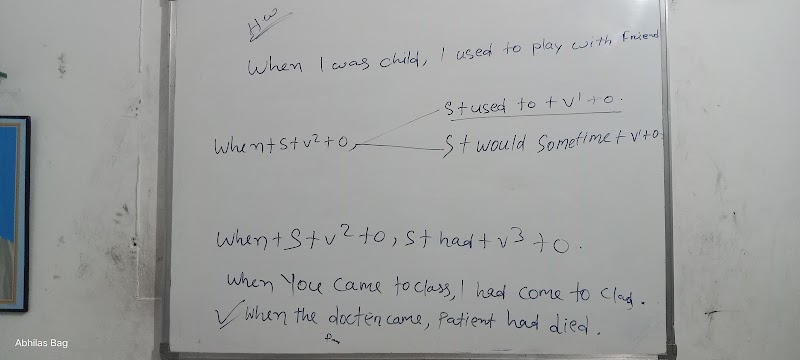 HW
When I was child, I used to play with Friend
S+used to + V¹+O.
When+S+V²+O,
S+ would Sometime+ V¹+O
When+S+V²+O, S+ had+V³+O.
When You came to class, I had come to Clas.
✓ When the docten came, Patient had died.
Abhilas Bag